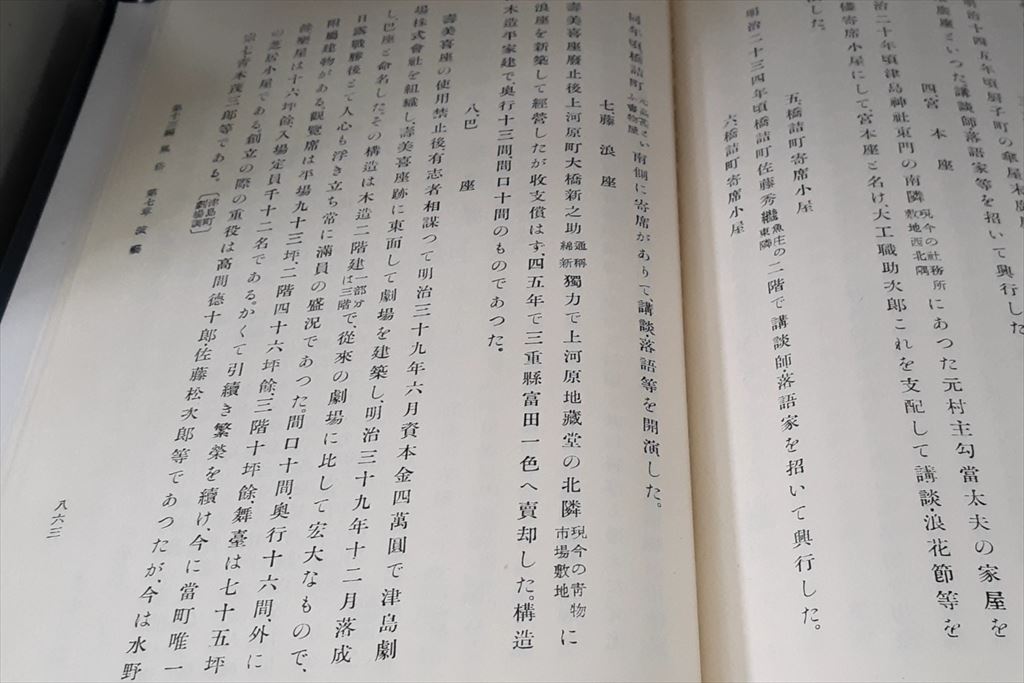 明治十四五年頃厨子町の傘屋
座といつた講師落語家等を招いて興行した
四、宮本座
治二十年頃津島神社東門の南隣現今の社務所敷地西北隅にあつた元村主勾當太夫の家屋を
儘寄席小屋にして、宮本座と名け、大工職助次郎これを支配して講談・浪花節等を
した。
五、橋詰町寄席小屋
明治二十三四年頃橋詰町佐藤秀繼魚庄の東隣の二階で講談師・落語家を招いて興行した。
六、橋詰町寄席小屋
同年頃橋詰町南側に寄席がありて講談・落語等を開演した。
七、藤浪座
壽美喜座廢止後上河原町大橋新之助通稱綿新獨力で上河原地藏堂の北隣現今の靑物市場敷地に
浪座を新築して經營したが收支償はず、四五年で三重縣富田一色へ賣却した。構造
木造平家建で、奥行十三間間口十間のものであつた。
八、巴座
壽美喜座の使用禁止後有志者相謀つて明治三十九年六月資本金四萬圓で津島劇
場株式會社を組織し、壽美喜座跡に東面して劇場を建築し、明治三十九年十二月落成
し、巴座と命名した。その構造は木造二階建一部分は三階で、從來の劇場に比して宏大なもので、
日露戰勝後とて人心も浮き立ち常に滿員の盛況であつた。間口十間、奥行十六間、外に
附屬建物がある。觀覽席は平場九十三坪、二階四十六坪餘、三階十坪餘、舞臺は七十五坪
餘、樂屋は十六坪餘、入場定員千十二名である。かくて引續き繁榮を續け、今に當町唯一
の芝居小屋である。創立の際の重役は高間德十郎佐藤松次郎等であつたが、今は水野
宗七靑木茂三郎等である。〔津島町劇場調〕
第十三編 風俗 第七章 演藝
八六三